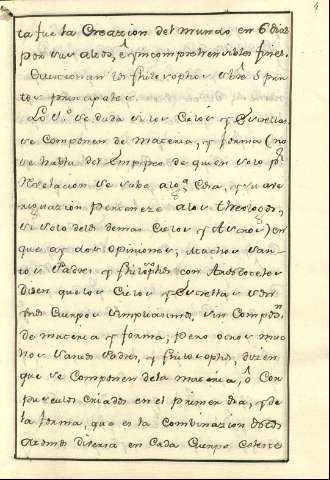 ta fue la Creazion del mundo en 6 dias
por sus altos, è yncomprehensibles fines.
Questionan los philosophos sobre 3 pun
tos principales.
Lo 1º se duda si los Cielos y Estrellas
se Componen de materia, y forma (no
se habla del Empireo de quien solo pr
Revelacion se sabe algª Cosa, y su ave
riguazion perteneze alos theologos,
si solo delos demas Cielos y Astros) en
que ay dos opiniones, Muchos San
tos Padres y Philosophos con Aristoteles
dizen que los Cielos y Estrellas son
Cuerpos simplissimos, sin Composn
de materia y forma; pero otros mu
chos Santos Padres, y philosophos, dizen
que se Componen dela materia, ô Cor
pusculos criados en el primer dia, y de
la forma, que es la Combinazion
diversa en Cada Cuerpo Celeste